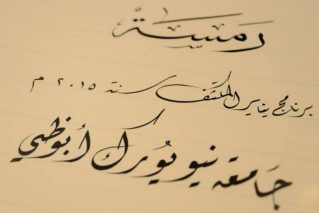 رمسية
برنامج يناير المكثف سنة ٢٠١٥ م
جامعة نيويورك أبوظبي